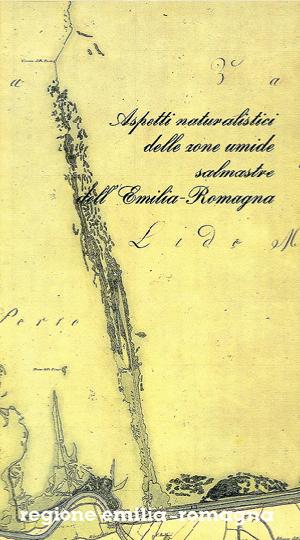 a
3ª
a
Aspetti naturalistici
delle zone umide
salmastre
dell'Emilia-Romagna
Lido M
Porto
regione emilia-romagna